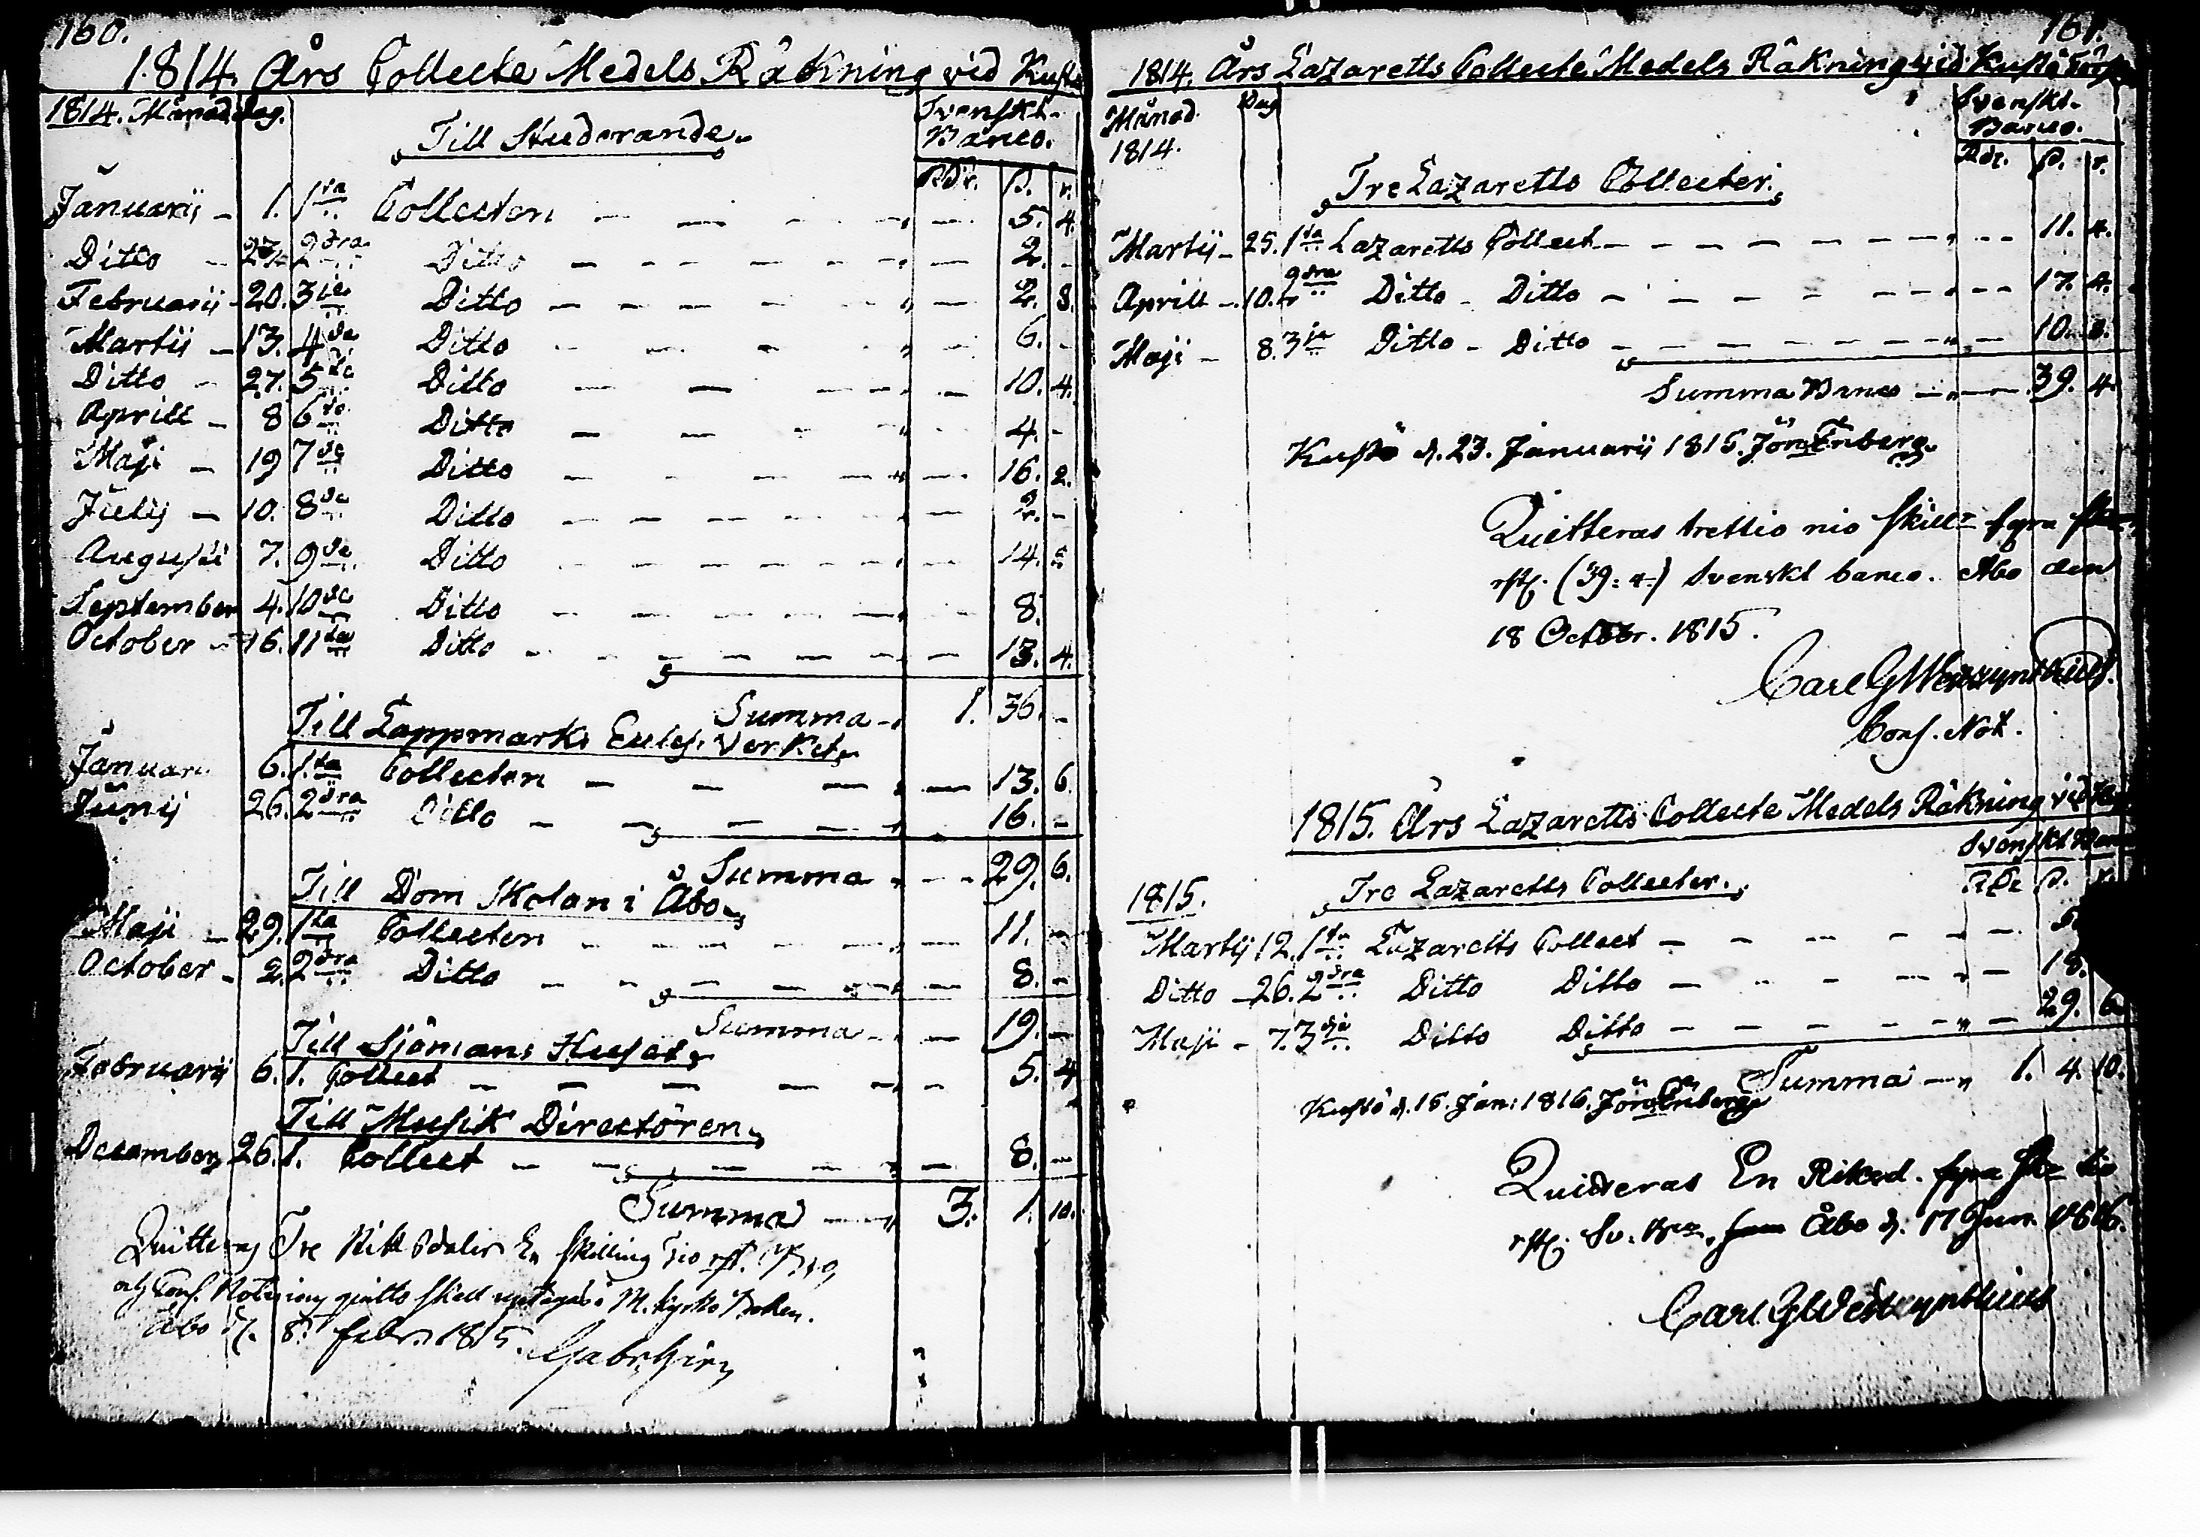 160.
1814. Års Collecte Medels Räkning vid Kustö
1814. Månad. Dag. Svenskt
Till Studerande. Banco.
RDr. S. r.
Januarij - 1. 1sta Collecten - - - - 5. 4.
Ditto - 2dra Ditto - - - - 2. -
Februarij - 20. 3je Ditto - - - - 2. 8.
Martij - 13. 4de Ditto - - - - 6. -
Ditto - 27. 5te Ditto - - - - 10. 4.
Aprill - 8 6te Ditto - - - - 4. -
Maji - 19 7de Ditto - - - - 16. 2.
Julij - 10. 8de Ditto - - - - 2. -
Augusti 7. 9de Ditto - - - - 14.
September 4. 10de Ditto - - - - 8.
October - 16. 11te Ditto - - - - 13. 4.
Summa - 1. 36. -
Till Lappmarks Eccles. Verket
Januari 6. 1sta Collecten - - - - 13. 6.
Junij 26. 2dra Ditto - - - - 16. -
Summa - - - 29. 6.
Till Dom Skolan i Åbo
Maji - 29. 1sta Collecten - - - - 11. -
October - 2. 2dra Ditto - - - - 8. -
Summa - - 19. -
Till Sjömans Huset
Februarij 6. 1. Collect - - - - 5. 4
Till Musik Directören
December 26. 1. Collect - - - - 8. -
Summa - 3. 1. 10.
Quitteras Tre Riksdaler En skilling Tio rst.
Åbo d. 8. Febr. 1815.
161.
1814. Års Lazaretts Collecte Medels Räkning vid Kustö
Månad Dag Svenskt
1814. Banco.
Rdr. S. r.
Tre Lazaretts Collecter.
Martij - 25. 1sta Lazaretts Collect - - - - 11. 4.
Aprill - 10. 2dra Ditto - Ditto - - - - 17. 4.
Maji - 8. 3je Ditto - Ditto - - - - 10. 8.
Summa Banco - - 39. 4.
Kustö d. 23. Januarij 1815. Jöns Enberg
Quitteras trettio nio skill fyra
rst. (39: 4) Svenskt banco. Åbo den
18 Octobr. 1815.
Carl G Westzynthius.
Cons. Not.
1815. Års Lazaretts Collecte Medels Räkning vid
Svenskt
1815. Tre Lazaretts Collecter.
Martij 12. 1sta Lazaretts Collect - - - - 5.
Ditto - 26. 2dra Ditto Ditto - - - - 18.
Maji - 7. 3dje Ditto Ditto - - - - 29. 6.
Summa - 1. 4. 10.
Kustö d. 15. Jan: 1816. Jöns Enberg
Quitteras En Riksd. fyra tio
rst. Sv. Åbo d. 17 1816.
Carl G Westzynthius